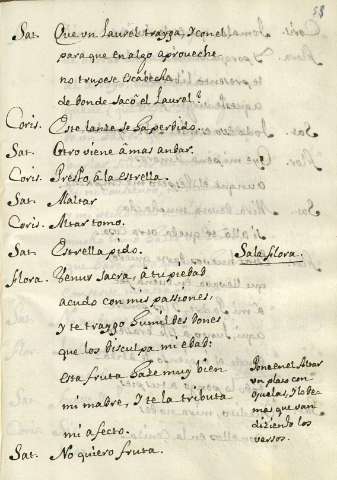 58
Sat. Que vn Laurel trayga, y con el
para que en algo aproveche
no truxese escabeche
de donde sacò el Laurel?
Coris. Este lanze se ha perdido.
Sat. Otro viene à mas andar.
Coris. Presto, à la estrella.
Sat. Al altar
Coris. Altar tomo.
Sat. Estrella pido. Sale flora.
flora. Venus sacra, à tu piedad
acudo con mis passiones;
y te traygo humildes dones
que los disculpa mi edad;
esta fruta haze muy bien
mi madre, y te la tributa
mi afecto.
Pone en el Altar
vn plato con
y lo de
mas que van
diziendo los
versos.
Sat. No quiero fruta.